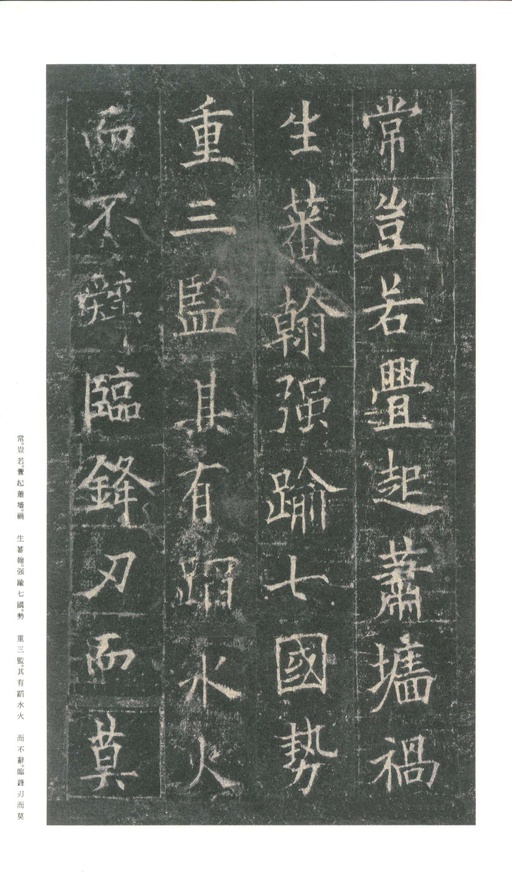 常豈若舋起蕭墻禍
生蕃翰强踰七國勢
重三監其有蹈水火
而不辭臨鋒刃而莫
常、豈若舋起蕭墻、禍 生蕃翰、强踰七國、勢 重三監、其有蹈水火 而不辭、臨鋒刃而莫